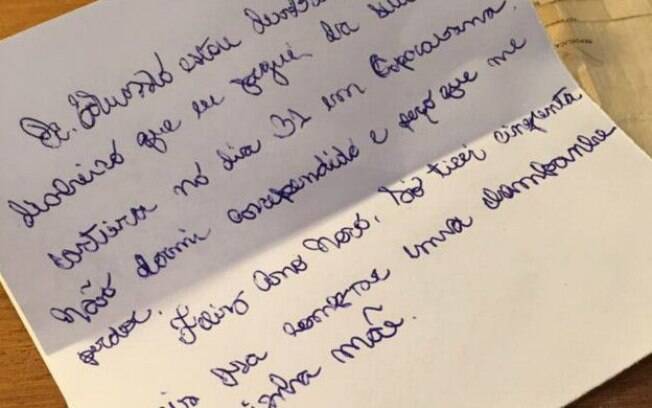 Sr. Eduardo estou devol
dinheiro que eu peguei da sua
carteira no dia 31 em Copacabana.
Não dormi arrependido e peço que me
perdoe. Feliz Ano Novo. Só tirei cinquenta
pra comprar uma champanhe
minha mãe.